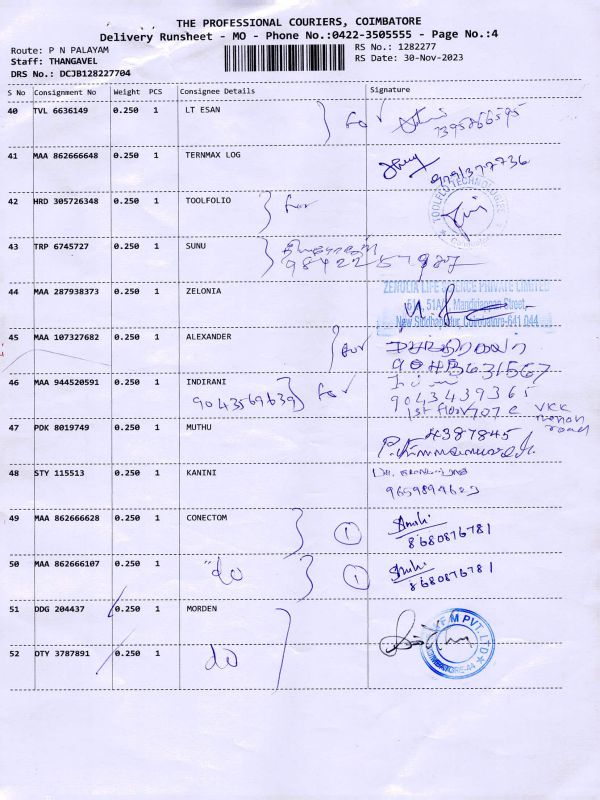 THE PROFESSIONAL COURIERS, COIMBATORE
Delivery Runsheet - MO - Phone No.:0422-3505555 - Page No.:4
Route: P N PALAYAM
RS No.: 1282277
Staff: THANGAVEL
RS Date: 30-Nov-2023
DRS No.: DCJB128227704
S No Consignment No Weight PCS Consignee Details Signature
40 TVL 6636149 0.250 1 LT ESAN for
41 MAA 862666648 0.250 1 TERNMAX LOG 9791377736
42 HRD 305726348 0.250 1 TOOLFOLIO for
43 TRP 6745727 0.250 1 SUNU
44 MAA 287938373 0.250 1 ZELONIA
ZENOCIA LIFE SCIENCE PRIVATE LIMITED
51A, Mandiriappan Street,
New Siddhapudur, Coimbatore-641 044
45 MAA 107327682 0.250 1 ALEXANDER for
46 MAA 944520591 0.250 1 INDIRANI for
9043569639
9043439365
1st floor 707 C VKK menon road
47 PDK 8019749 0.250 1 MUTHU
4387845
48 STY 115513 0.250 1 KANINI
49 MAA 862666628 0.250 1 CONECTOM 1
8680876781
50 MAA 862666107 0.250 1 "do 1
8680876781
51 DDG 204437 0.250 1 MORDEN
52 DTY 3787891 0.250 1 do
F M PVT LTD
COIMBATORE-44